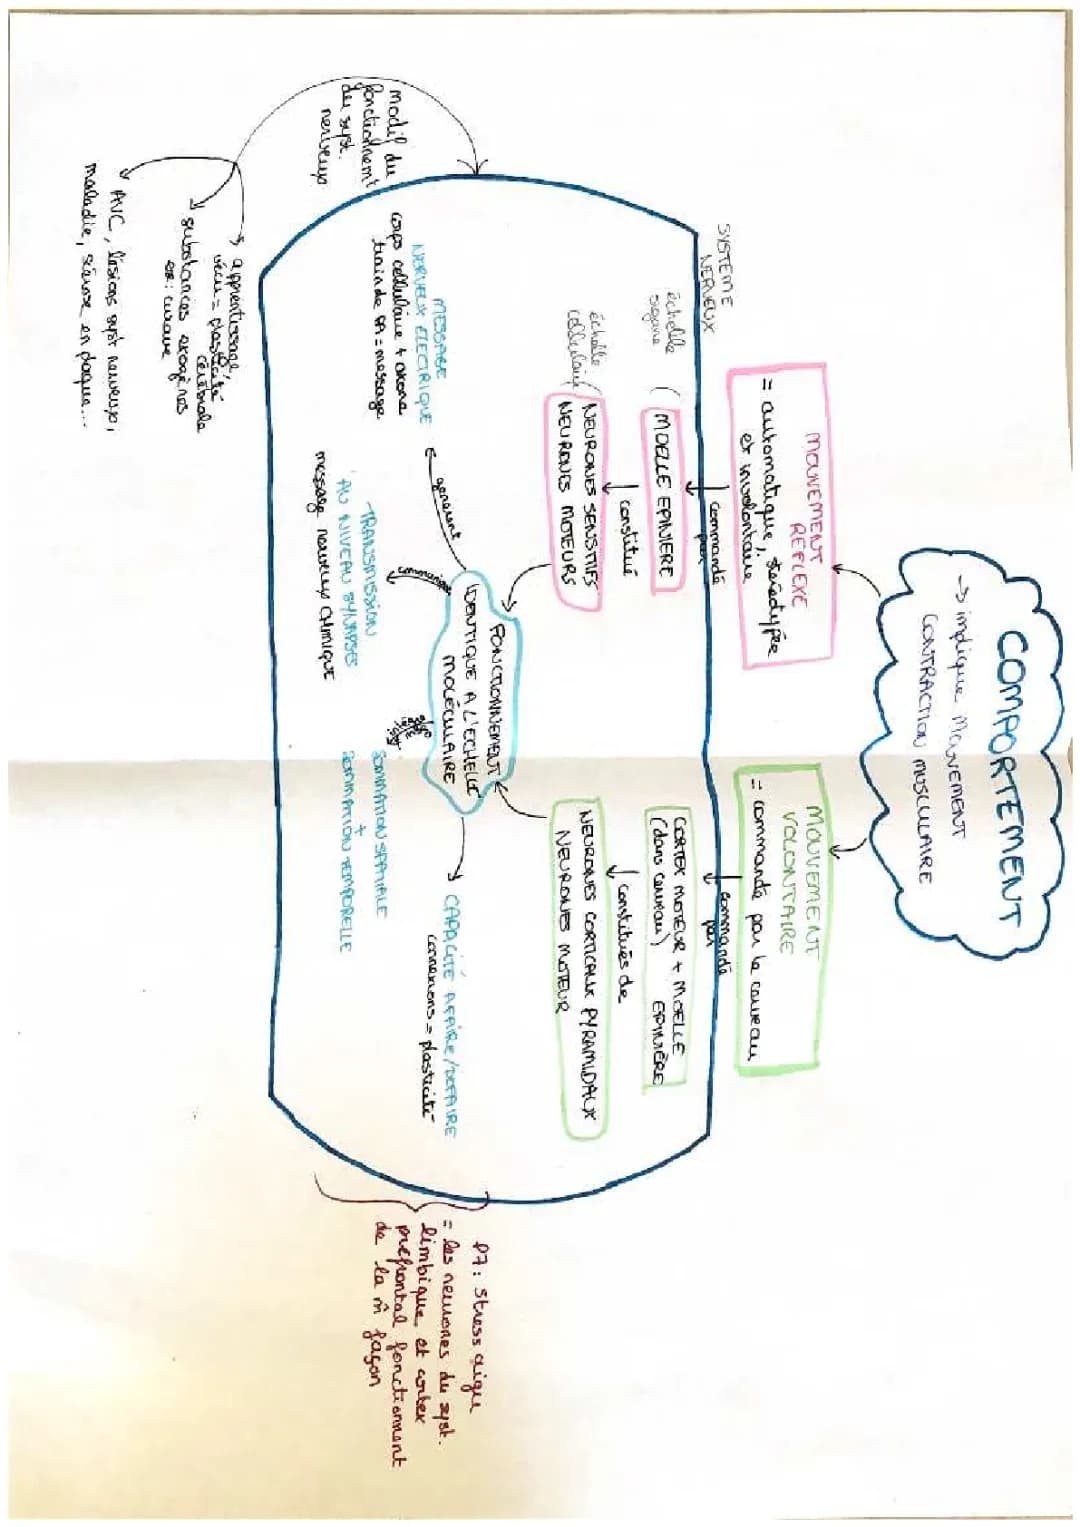 COMPORTEMENT
→ implique MOUVEMENT
CONTRACTION MUSCULAIRE
MOUVEMENT
REFLEXE
= automatique, stéréotypée
et involontaire
MOUVEMENT
VOLONTAIRE
= commandé par le cerveau
SYSTEME
NERVEUX
commandé
par
commandé
par
échelle
organe
MOELLE EPINIERE
CORTEX MOTEUR + MOELLE
(dans cerveau) EPINIÈRE
constitué
constitués de
échelle
cellulaire
NEURONES SENSITIFS
NEURONES MOTEURS
NEURONES CORTICAUX PYRAMIDAUX
NEURONES MOTEUR
FONCTIONNEMENT
IDENTIQUE A L'ECHELLE
MOLÉCULAIRE
génèrent
MESSAGE
NERVEUX ELECTRIQUE
corps cellulaire + axone
train de PA = message
communique
TRANSMISSION
AU NIVEAU SYNAPSES
message nerveux CHIMIQUE
SOMMATION SPATIALE
+
SOMMATION TEMPORELLE
CAPACITÉ A FAIRE/DEFAIRE
connexions = plasticité
modif du
fonctionnemt
du syst.
nerveux
→ apprentissage,
vécu = plasticité
cérébrale
→ substances exogènes
ex : curare
AVC, lésions syst nerveux,
maladie, sclérose en plaque...
P7 : stress aigu
= les neurones du syst.
limbique et cortex
préfrontal fonctionnent
de la m̂ façon